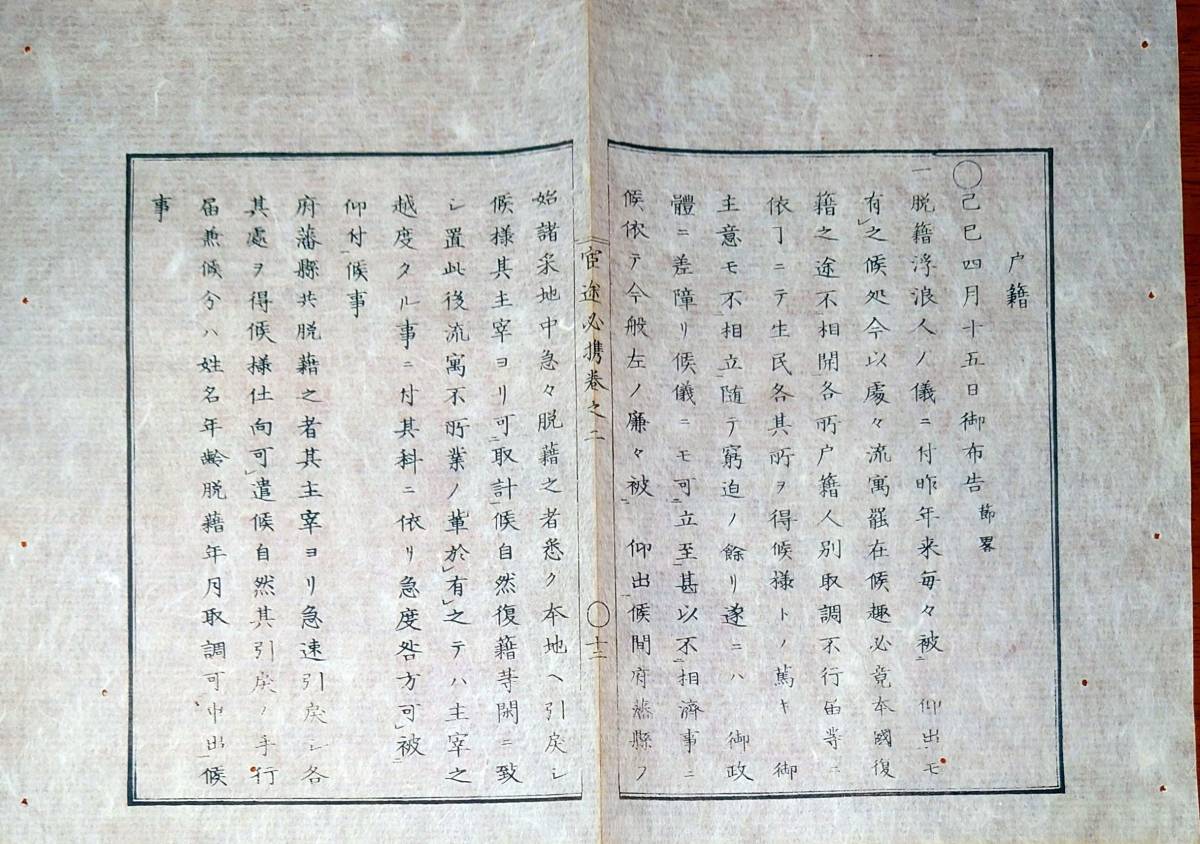 戸籍
〇己巳四月十五日御布告 節畧
一脱籍浮浪人ノ儀ニ付昨年来毎々被二 仰出一モ
有レ之候処今以處々流寓罷在候趣必竟本國復
籍之途不二相開一各所戸籍人別取調不行届等ニ
依ヿニテ生民各其所ヲ得候様トノ篤キ 御
主意モ不二相立一随テ窮迫ノ餘リ遂ニハ 御政
體ニ差障リ候儀ニモ可二立至一甚以不二相濟一事ニ
候依テ今般左ノ廉々被二 仰出一候間府藩縣ヲ
宦途必携巻之二
〇十二
始諸采地中急々脱籍之者悉ク本地ヘ引戻シ
候様其主宰ヨリ可二取計一候自然復籍等閑ニ致
シ置此後流寓不所業ノ輩於レ有レ之テハ主宰之
越度タル事ニ付其科ニ依リ急度咎方可レ被二
仰付一候事
府藩縣共脱籍之者其主宰ヨリ急速引戻シ各
其處ヲ得候様仕向可レ遣候自然其引戻ノ手行
届兼候分ハ姓名年齢脱籍年月取調可二申出一候
事